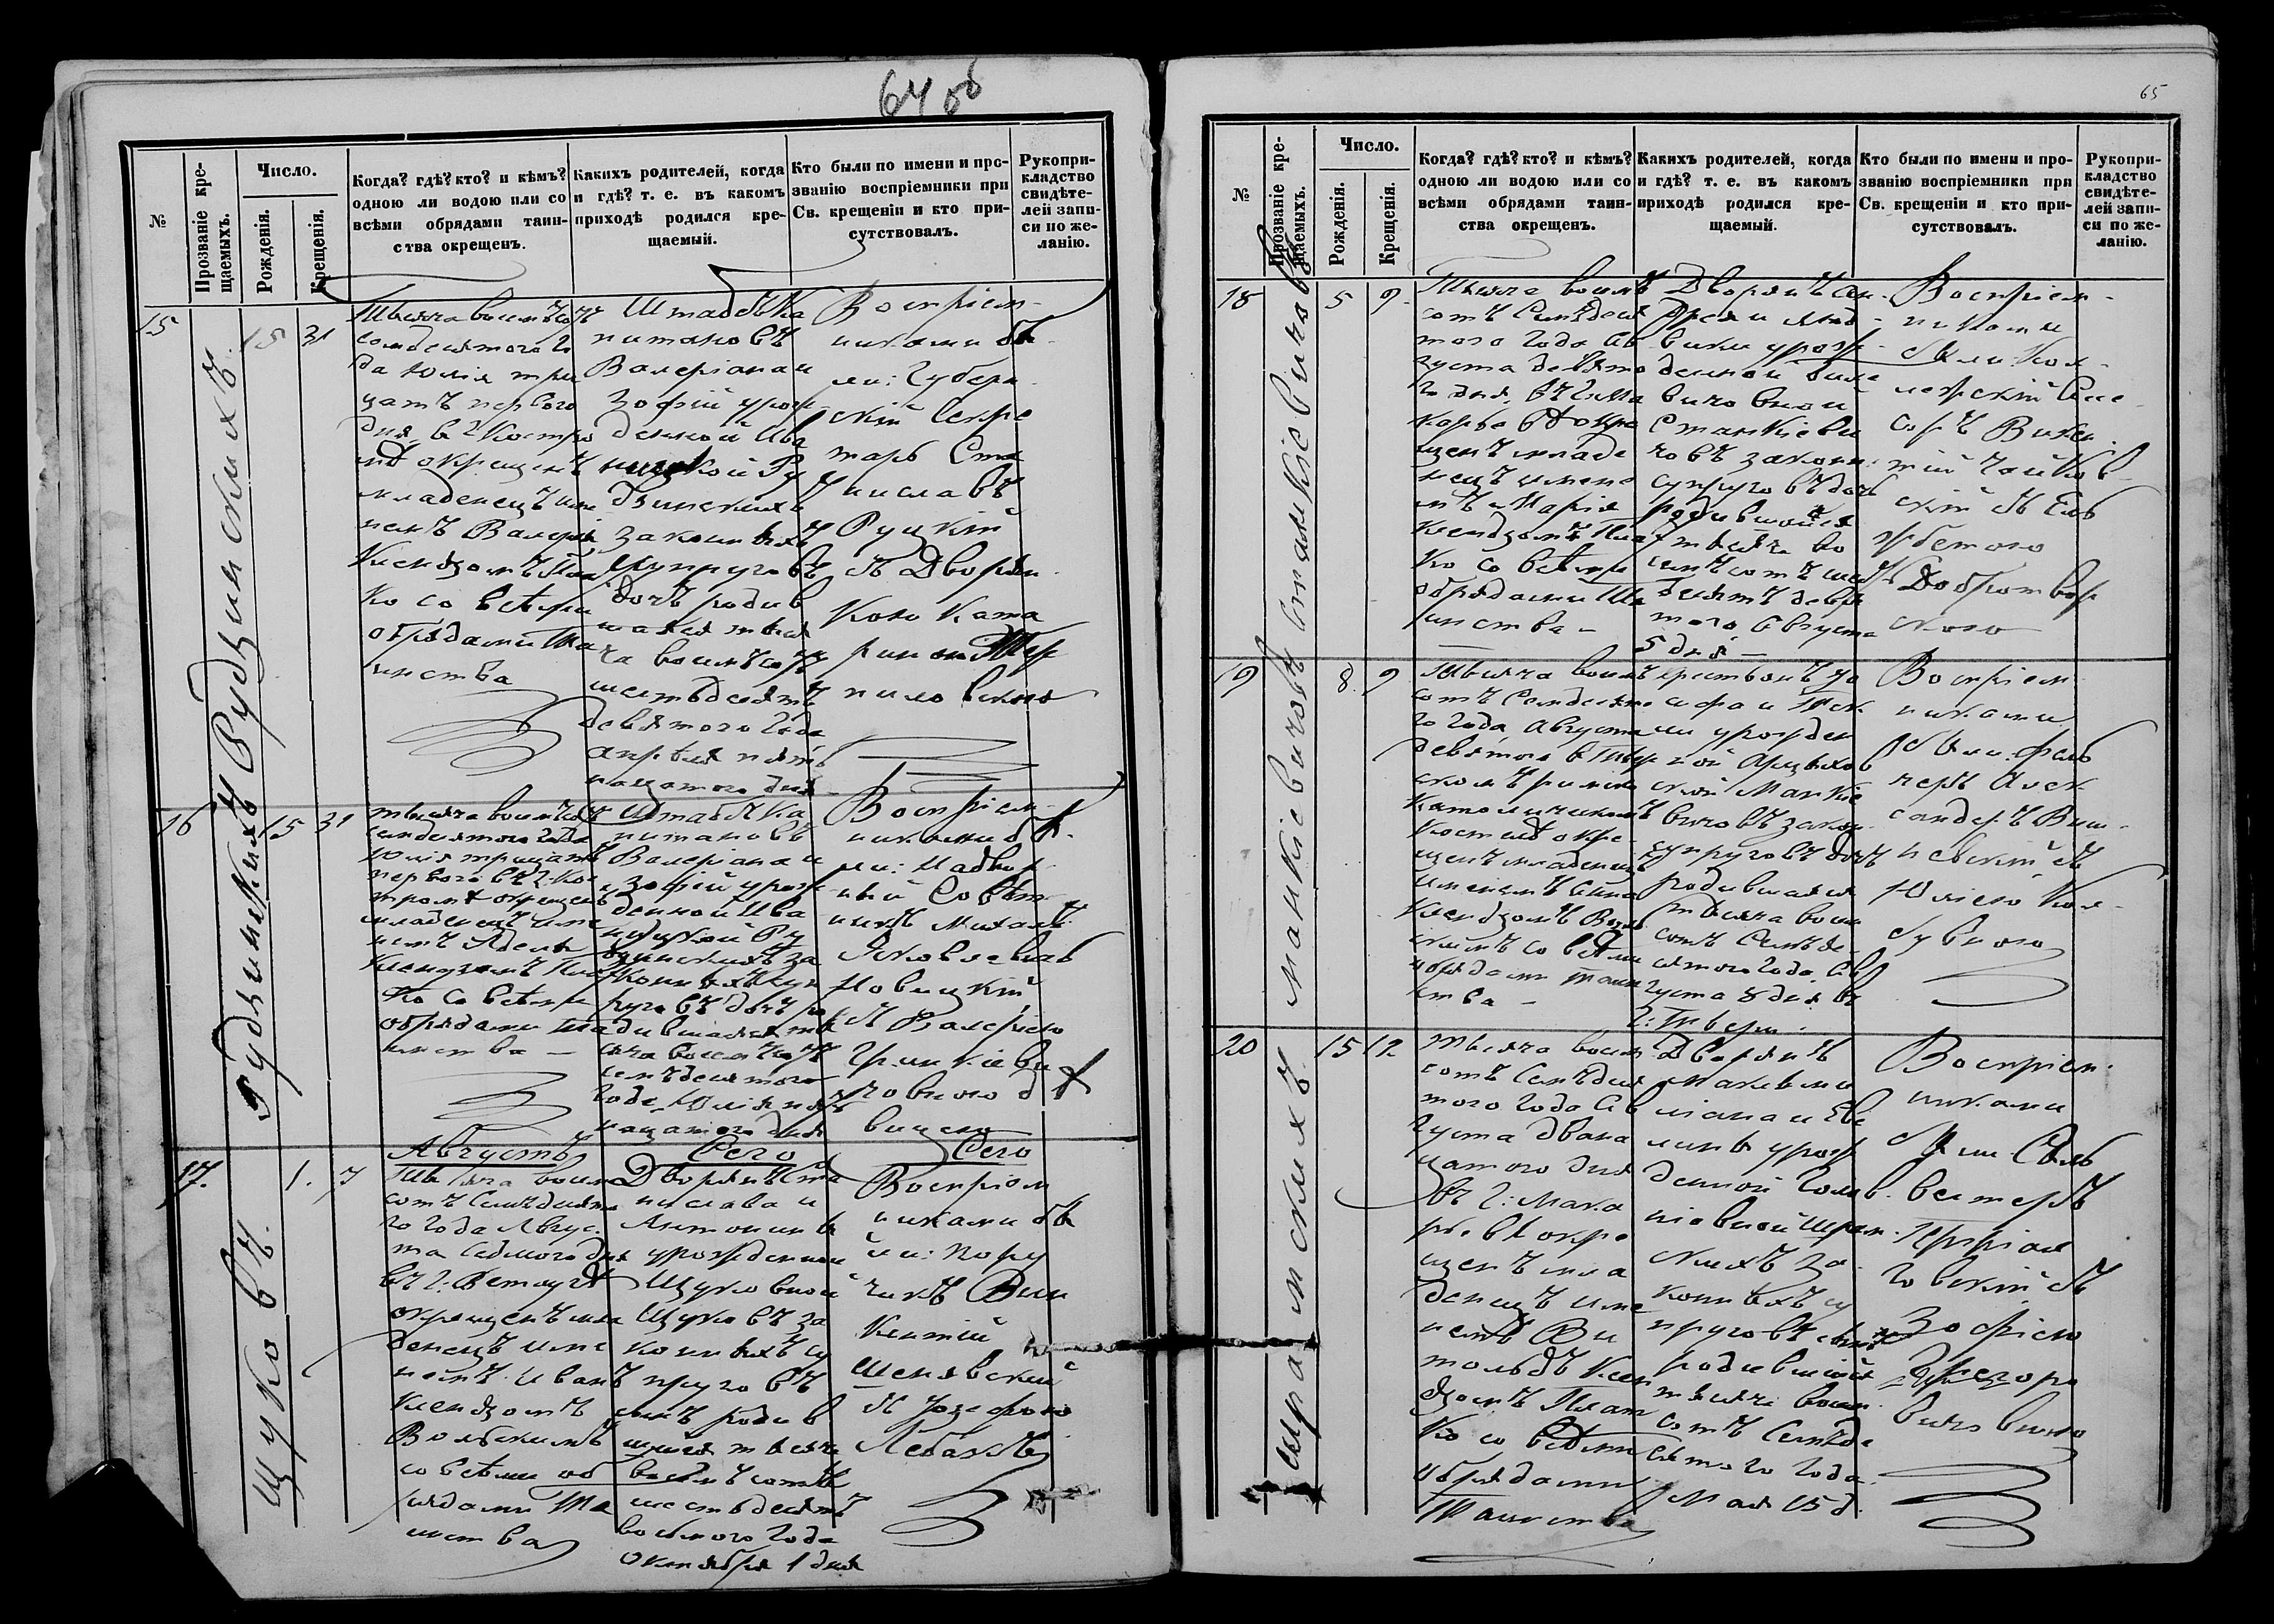 64 об
№
Прозваніе кре-
щаемыхъ.
Число.
Рожденія.
Крещенія.
Когда? гдѣ? кто? и кѣмъ?
одною ли водою или со
всѣми обрядами таин-
ства окрещенъ.
Какихъ родителей, когда
и гдѣ? т. е. въ какомъ
приходѣ родился кре-
щаемый.
Кто были по имени и про-
званію воспріемники при
Св. крещеніи и кто при-
сутствовалъ.
Рукопри-
кладство
свидѣте-
лей запи-
си по же-
ланію.
15
Рудзинскихъ
15
31
Тысяча восемъсотъ
семдесятого го
да юлія трид
цать первого
дня, въ г Костро
мѣ окрещенъ
младенецъ име
немъ Валерія
Ксендзомъ
ко со всѣми
обрядами Та
инства
Штабсъ Ка
питановъ
Валеріана и
Зофіи урож
денной Ива
законныхъ
Супруговъ
дочь родив
шаяся тыся
ча восемъсотъ
шестьдесятъ
девятого года
апрѣля пят
надцатого дня
Воспріем-
никами бы-
ли: Губерн-
скій Секре
тарь Ста
ниславъ
Руцкій
съ Дворян-
кою Ката
риною
16
Рудзинскихъ
15
31
тысяча восемъсотъ
семдесятого года
юлія тридцать
первого въ г: Кос
тромѣ окрещенъ
младенецъ име
немъ Адель
Ксендзомъ
ко со всѣми
обрядами та
инства —
Штабсъ Ка
питановъ
Валеріана и
Зофіи урож
денной Ива
законныхъ суп
руговъ дочь ро
дившаяся ты
сяча восемъсотъ
семъдесятого
года Юлія пят
надцатого дня
Воспріем-
никами бы-
ли: Надвор
ный Совѣт
никъ Михаилъ
Яковлевъ
Новицкій
съ Валеріею
Гринкіеви
човною д
вицею
17.
Щуковъ.
1.
7
Августъ
Сего
Сего
Тысяча восемъ
сотъ Семдесято
го года Авгус
та Седмого дня
въ г: Ветлугѣ
окрещенъ мла
денецъ име
немъ Иванъ
Ксендзомъ
Вольскимъ
со всѣми об
рядами Та
инства
Дворянъ Ста
нислава и
Антонины
урожденной
Щуковной
Щуковъ за
конныхъ су
пруговъ
сынъ родив
шійся тысяча
восемъсотъ
шестьдесятъ
восьмого года
октября 1 дня
Воспріем
никами бы
ли: Пору
чикъ Вин
кентій
Шенявскій
съ Юзефою
65
№
Прозваніе кре-
щаемыхъ.
Число.
Рожденія.
Крещенія.
Когда? гдѣ? кто? и кѣмъ?
одною ли водою или со
всѣми обрядами таин-
ства окрещенъ.
Какихъ родителей, когда
и гдѣ? т. е. въ какомъ
приходѣ родился кре-
щаемый.
Кто были по имени и про-
званію воспріемники при
Св. крещеніи и кто при-
сутствовалъ.
Рукопри-
кладство
свидѣте-
лей запи-
си по же-
ланію.
18
Станкіевичовъ
5
9
Тысяча восемъ
сотъ Семъдеся
того года Ав
густа девято
го дня, въ г: Ма
карьевѣ окре
щенъ младе
нецъ имене
мъ Марія
Ксендзомъ Піот
ко со всѣми
обрядами Та
инства —
Дворянъ Ан-
дрея и Люд-
вики урож-
денной
Станкіеви
човъ законн:
супруговъ дочь
родившаяся
тысяча во
семъсотъ шесть
десятъ девя
того Августа
5 дня —
Воспріем-
никами
были: Кол-
лежскій Асе-
соръ Викен-
тій Чайков-
скій съ Ель
жбетою
Доброт вор
скою
19
Манкіевичовъ
8.
9
Тысяча восемъ
сотъ Семдесято
го года Августа
девятого въ Твер
скомъ римско
католическомъ
Костелѣ окре
щенъ младенецъ
именемъ Анна
Ксендзомъ
скимъ со всѣми
обрядами таин
ства —
крестьянъ Іо
сифа и Тек
ли урожден
ной
Манкіе
вичовъ закон:
супруговъ дочь
родившаяся
тысяча восем
сотъ Семъде
сятого года Ав
густа 8 дня въ
г: Твери.
Воспріем
никами
были: фель
черъ Алек
сандеръ Виш-
невскій съ
Юліею Кол-
20
15
12
Тысяча восем
сотъ Семъдеся
того года Ав
густа двана
цатого дня
въ г: Мака
рьевѣ окре
щенъ мла
денецъ име
немъ Ви
тольдъ Ксен
дзомъ Піот
ко со всѣми
обрядами
Таинства
Дворянъ
Максими
ліана и Еве
лины урож
денной
законныхъ су
пруговъ сынъ
родившійся
тысяча восем
сотъ Семъде
сятого года
Мая 15 д.
Воспріем-
никами
были: Силь
вестеръ
съ
Зофіею